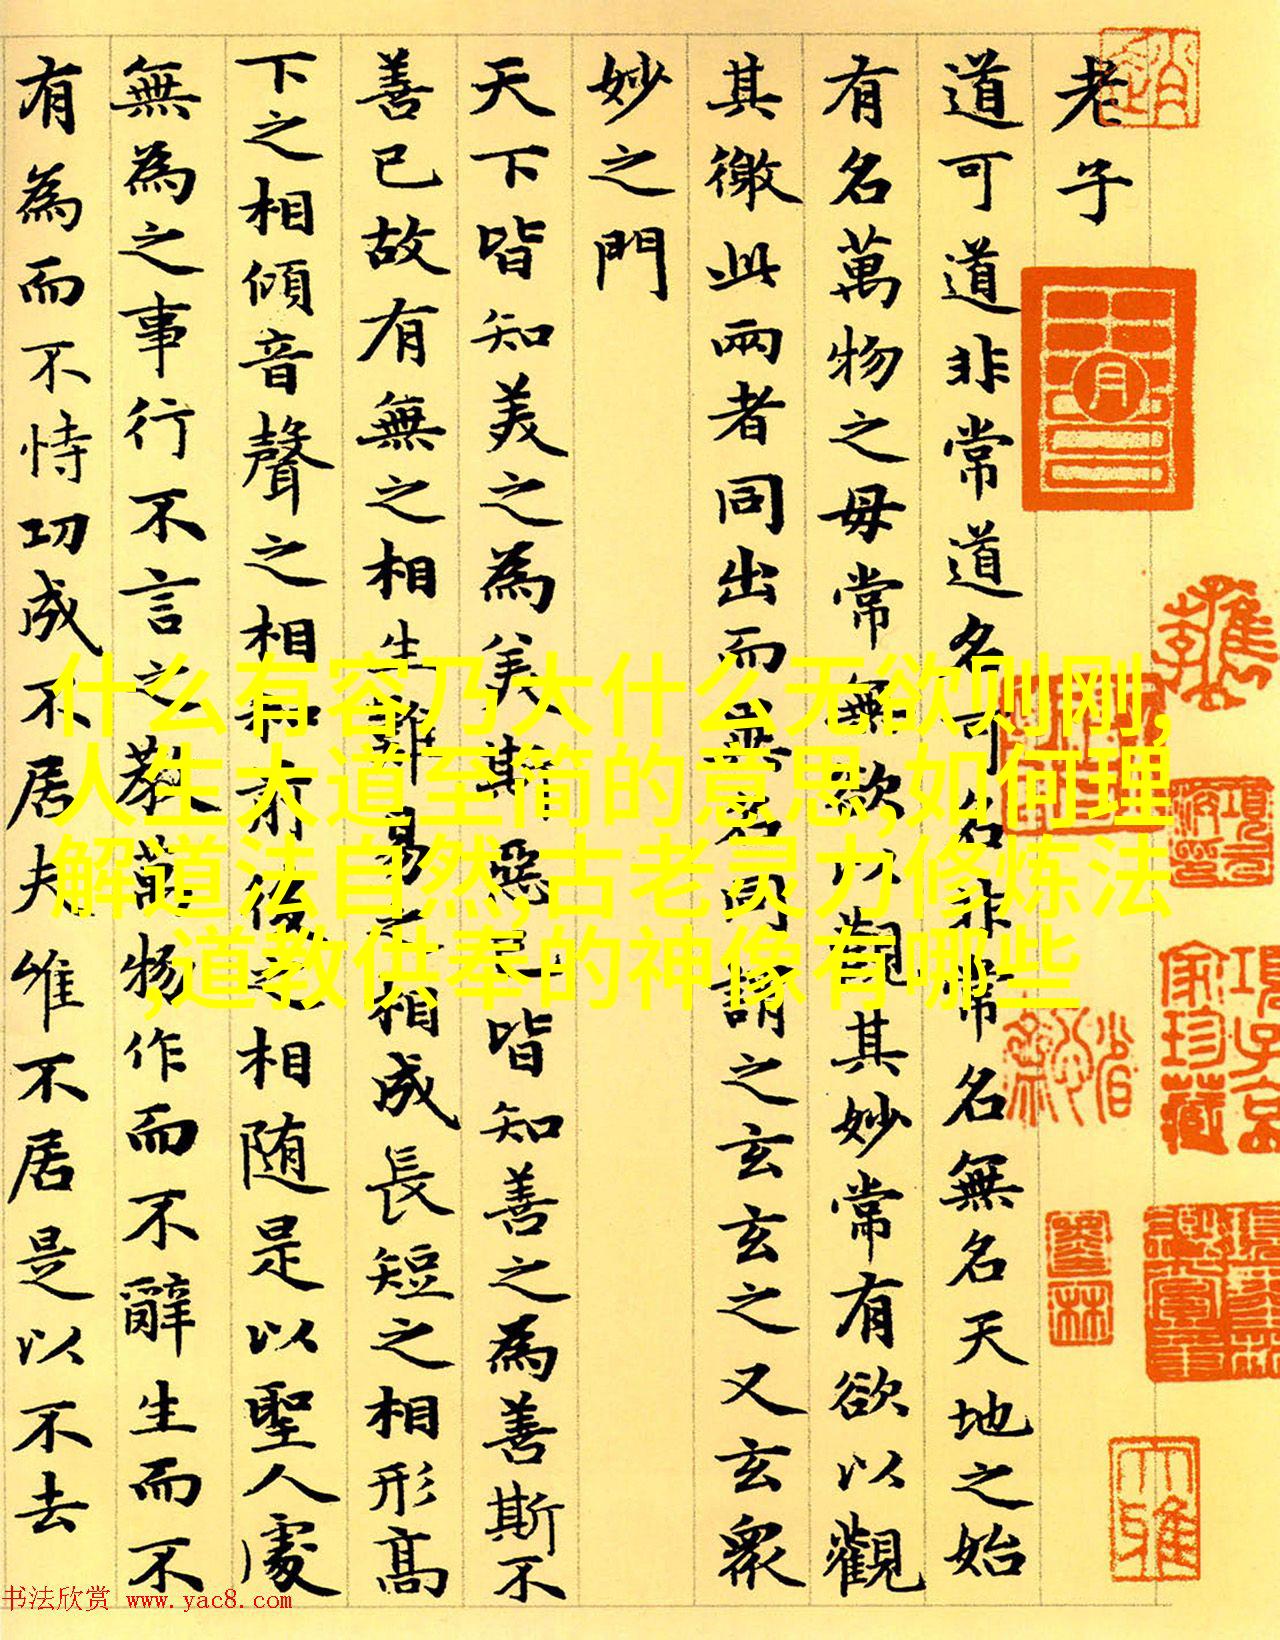 老子
道可道非常道名可名非常名無名天地之始
有名萬物之毋常無欲以觀其妙常有欲以觀
其徼此兩者同出而異名同謂之玄玄之又玄衆
妙之門
天下皆知美之為美斯惡已皆知善之為善斯不
善已故有無之相生難易之相成長短之相形高
下之相傾音聲之相和前後之相随是以聖人處
無為之事行不言之教萬物作而不辭生而不
有為而不恃功成不居夫唯不居是以不去
什么有容乃大什么无欲则刚,
人生大道至简的意思,如何理
解道法自然,古老灵力修炼法
,道教供奉的神像有哪些
項子京
家珍藏
大雅
书法欣赏 www.yac8.com